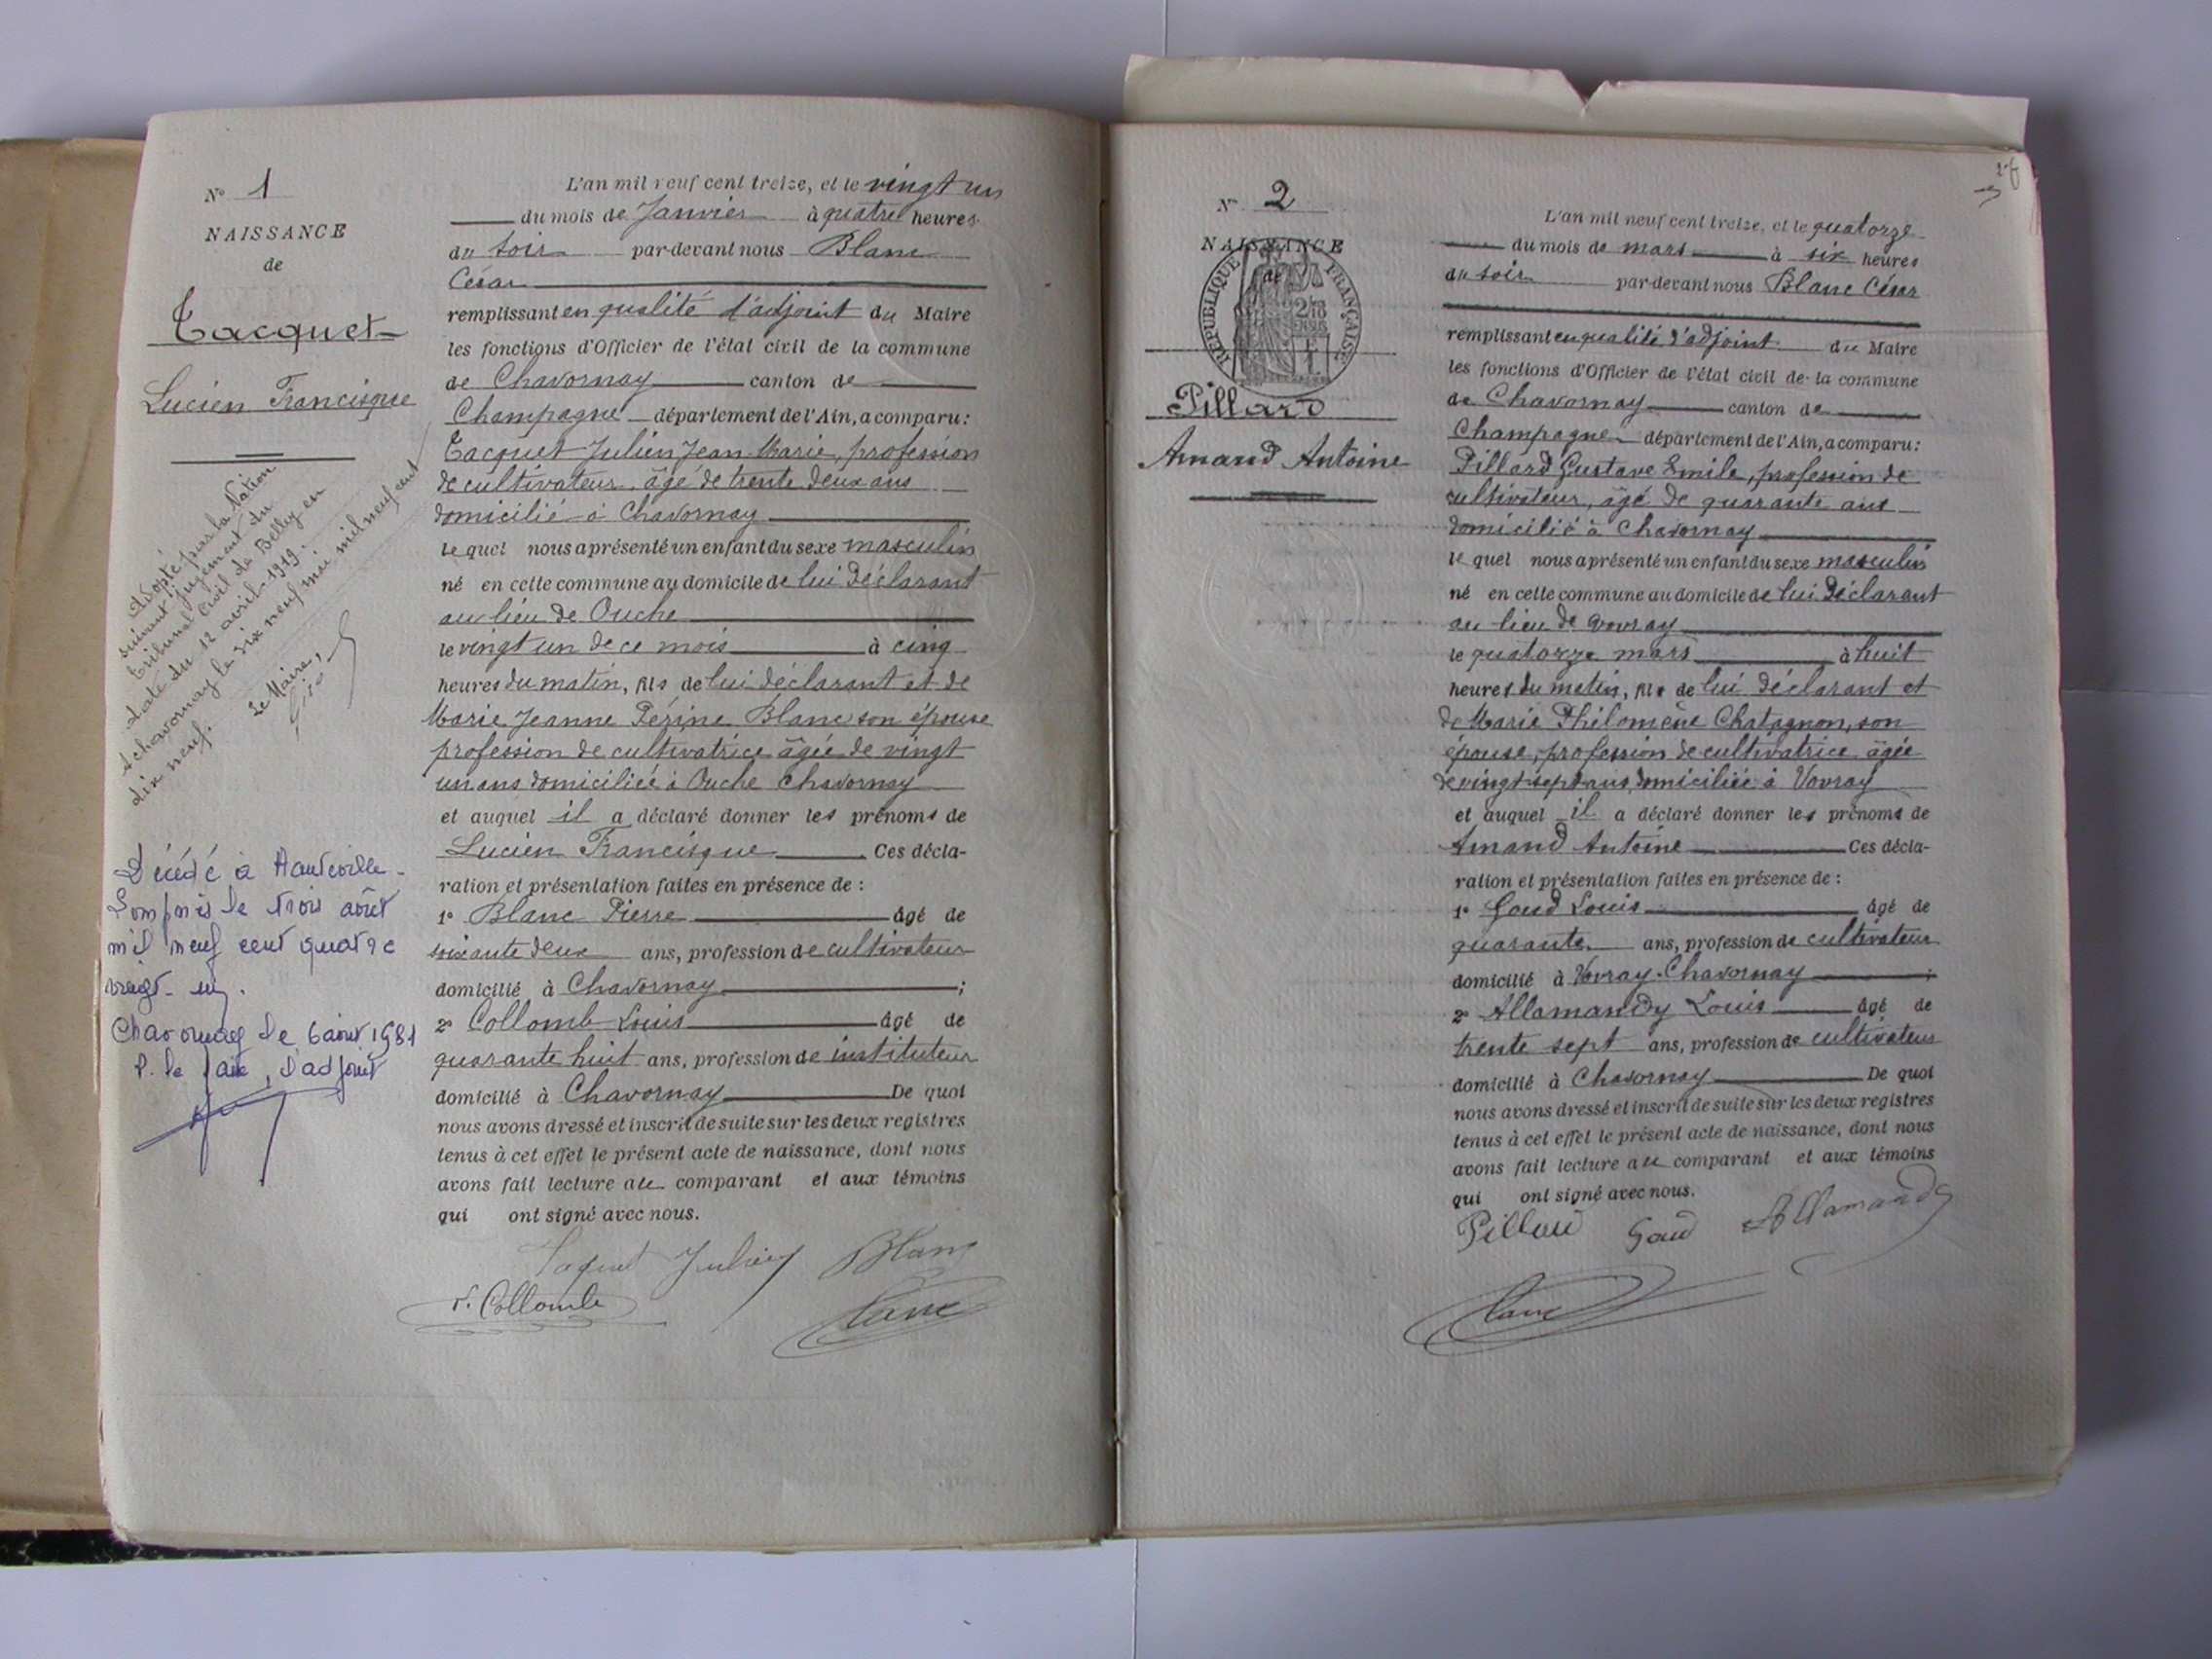 N° 1
NAISSANCE
de
Tacquet
Lucien Francisque
Adopté par la Nation
suivant jugement du
tribunal civil de Belley en
date du 12 avril 1919.
A chavornay le dix neuf mai mil neuf cent
dix neuf.
Le Maire,
Décédé à Hauteville-
Lompnès le trois août
mil neuf cent quatre
vingt-un.
Chavornay le 6 août 1981
P. le Maire, l'adjoint
L'an mil neuf cent treize, et le vingt un
du mois de Janvier à quatre heures
du soir par-devant nous Blanc
César
remplissant en qualité d'adjoint du Maire
les fonctions d'Officier de l'état civil de la commune
de Chavornay canton de
Champagne département de l'Ain, a comparu:
Tacquet Julien Jean Marie, profession
de cultivateur, âgé de trente deux ans
domicilié à Chavornay
lequel nous a présenté un enfant du sexe masculin
né en cette commune au domicile de lui déclarant
au lieu de Ouche
le vingt un de ce mois à cinq
heures du matin, fils de lui déclarant et de
Marie Jeanne Périne Blanc son épouse
profession de cultivatrice âgée de vingt
un ans domiciliée à Ouche Chavornay
et auquel il a déclaré donner les prénoms de
Lucien Francisque Ces décla-
ration et présentation faites en présence de :
1° Blanc Pierre âgé de
soixante deux ans, profession de cultivateur
domicilié à Chavornay ;
2° Collomb Louis âgé de
quarante huit ans, profession de instituteur
domicilié à Chavornay De quoi
nous avons dressé et inscrit de suite sur les deux registres
tenus à cet effet le présent acte de naissance, dont nous
avons fait lecture au comparant et aux témoins
qui ont signé avec nous.
Taquet Julien Blanc
L. Collomb Blanc
N° 2
NAISSANCE
de
RÉPUBLIQUE FRANÇAISE
Pillard
Amand Antoine
L'an mil neuf cent treize, et le quatorze
du mois de mars à six heures
du soir par-devant nous Blanc César
remplissant en qualité d'adjoint du Maire
les fonctions d'Officier de l'état civil de la commune
de Chavornay canton de
Champagne département de l'Ain, a comparu:
Pillard Gustave Emile, profession de
cultivateur, âgé de quarante ans
domicilié à Chavornay
lequel nous a présenté un enfant du sexe masculin
né en cette commune au domicile de lui déclarant
au lieu de Vovray
le quatorze mars à huit
heures du matin, fils de lui déclarant et
de Marie Philomène Chatagnon, son
épouse, profession de cultivatrice âgée
de vingt sept ans, domiciliée à Vovray
et auquel il a déclaré donner les prénoms de
Amand Antoine Ces décla-
ration et présentation faites en présence de :
1° Goud Louis âgé de
quarante ans, profession de cultivateur
domicilié à Vovray-Chavornay ;
2° Allamandy Louis âgé de
trente sept ans, profession de cultivateur
domicilié à Chavornay De quoi
nous avons dressé et inscrit de suite sur les deux registres
tenus à cet effet le présent acte de naissance, dont nous
avons fait lecture au comparant et aux témoins
qui ont signé avec nous.
Pillard Goud Allamandy
Blanc